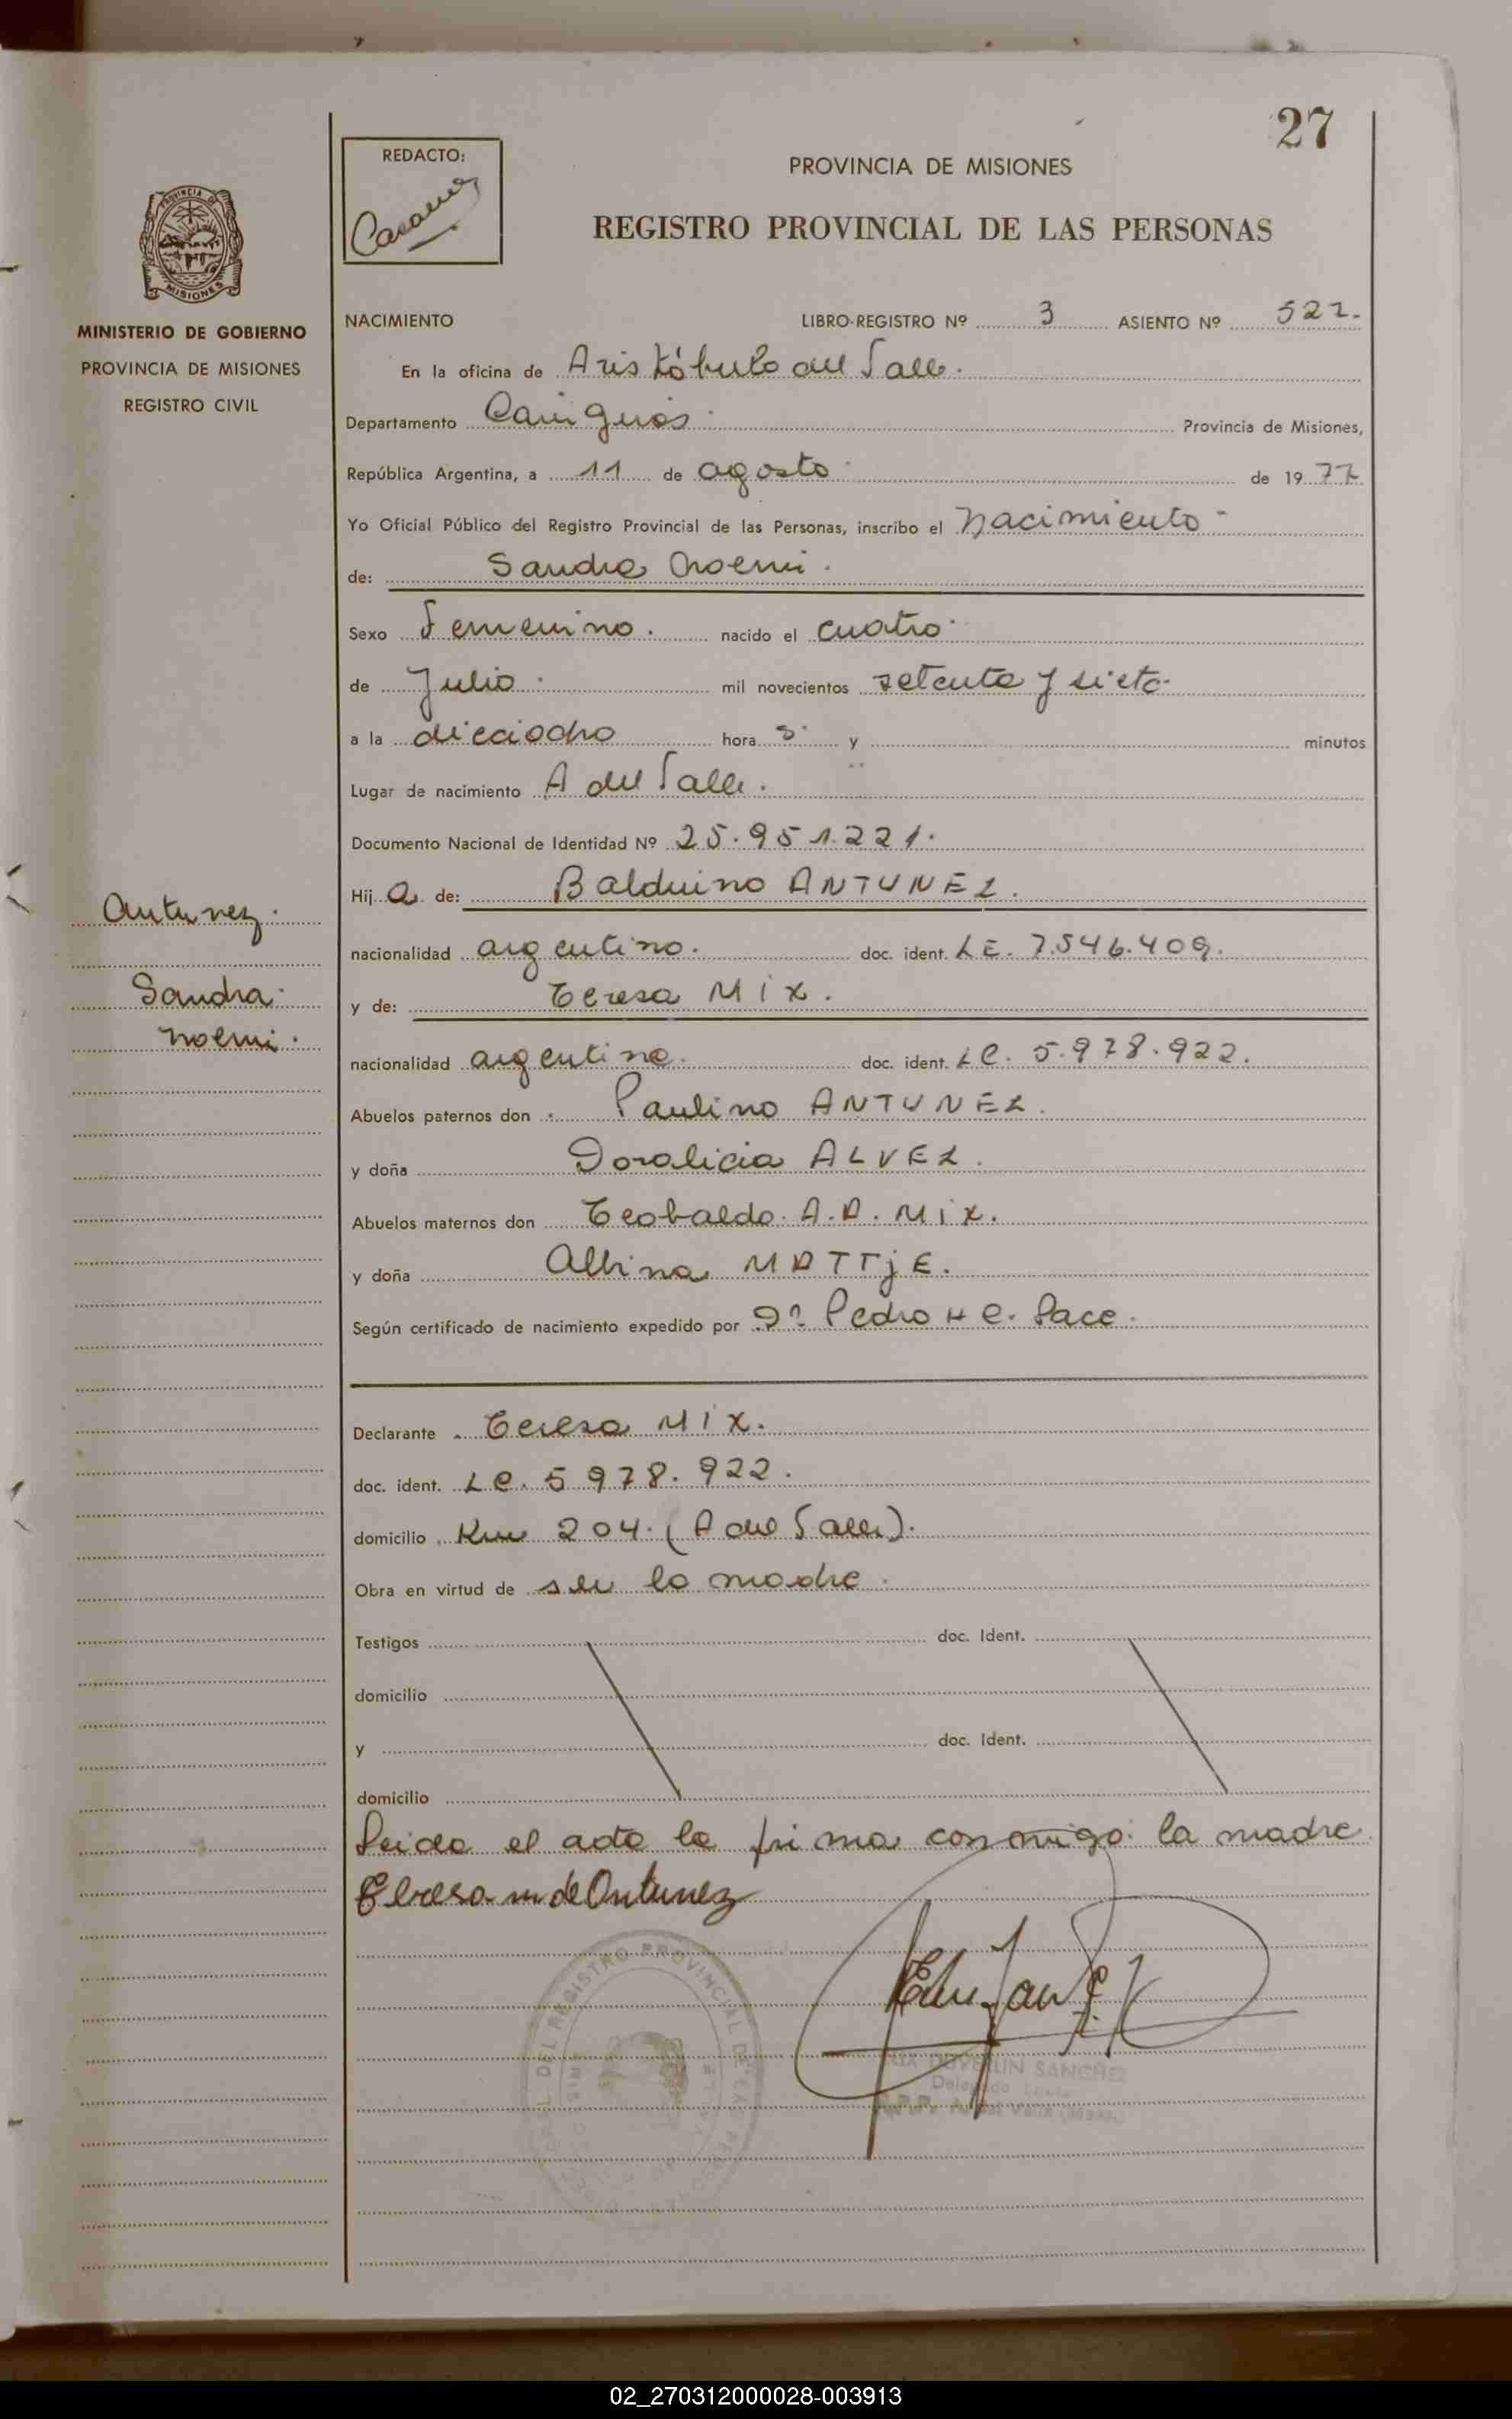 27
REDACTO:
PROVINCIA DE MISIONES
REGISTRO PROVINCIAL DE LAS PERSONAS
PROVINCIA DE
MISIONES
MINISTERIO DE GOBIERNO
PROVINCIA DE MISIONES
REGISTRO CIVIL
NACIMIENTO LIBRO-REGISTRO Nº 3 ASIENTO Nº 522.
En la oficina de Aristóbulo del Valle.
Departamento Cainguás. Provincia de Misiones,
República Argentina, a 11 de agosto de 1977
Yo Oficial Público del Registro Provincial de las Personas, inscribo el Nacimiento
de: Sandra Noemi.
Sexo Femenino. nacido el cuatro
de Julio. mil novecientos setenta y siete
a la dieciocho hora s y minutos
Lugar de nacimiento A del Valle.
Documento Nacional de Identidad Nº 25.951.221.
Hij a de: Balduino ANTUNEZ.
Antunez.
nacionalidad argentino. doc. ident. LE. 7.546.409.
Sandra
y de: Teresa Mix.
Noemi.
nacionalidad argentina. doc. ident. LC. 5.978.922.
Abuelos paternos don Paulino ANTUNEZ.
y doña Doralicia ALVEZ.
Abuelos maternos don Teobaldo A.A. Mix.
y doña Albina MATTjE.
Según certificado de nacimiento expedido por Dr. Pedro H C. Pace.
Declarante Teresa Mix.
doc. ident. LC. 5 978. 922.
domicilio Km 204. (A del Valle).
Obra en virtud de ser la madre.
Testigos doc. Ident.
domicilio
y doc. Ident.
domicilio
Leida el acta la firma conmigo la madre
Teresa m de Antunez
REGISTRO PROVINCIAL DE
SANCHEZ